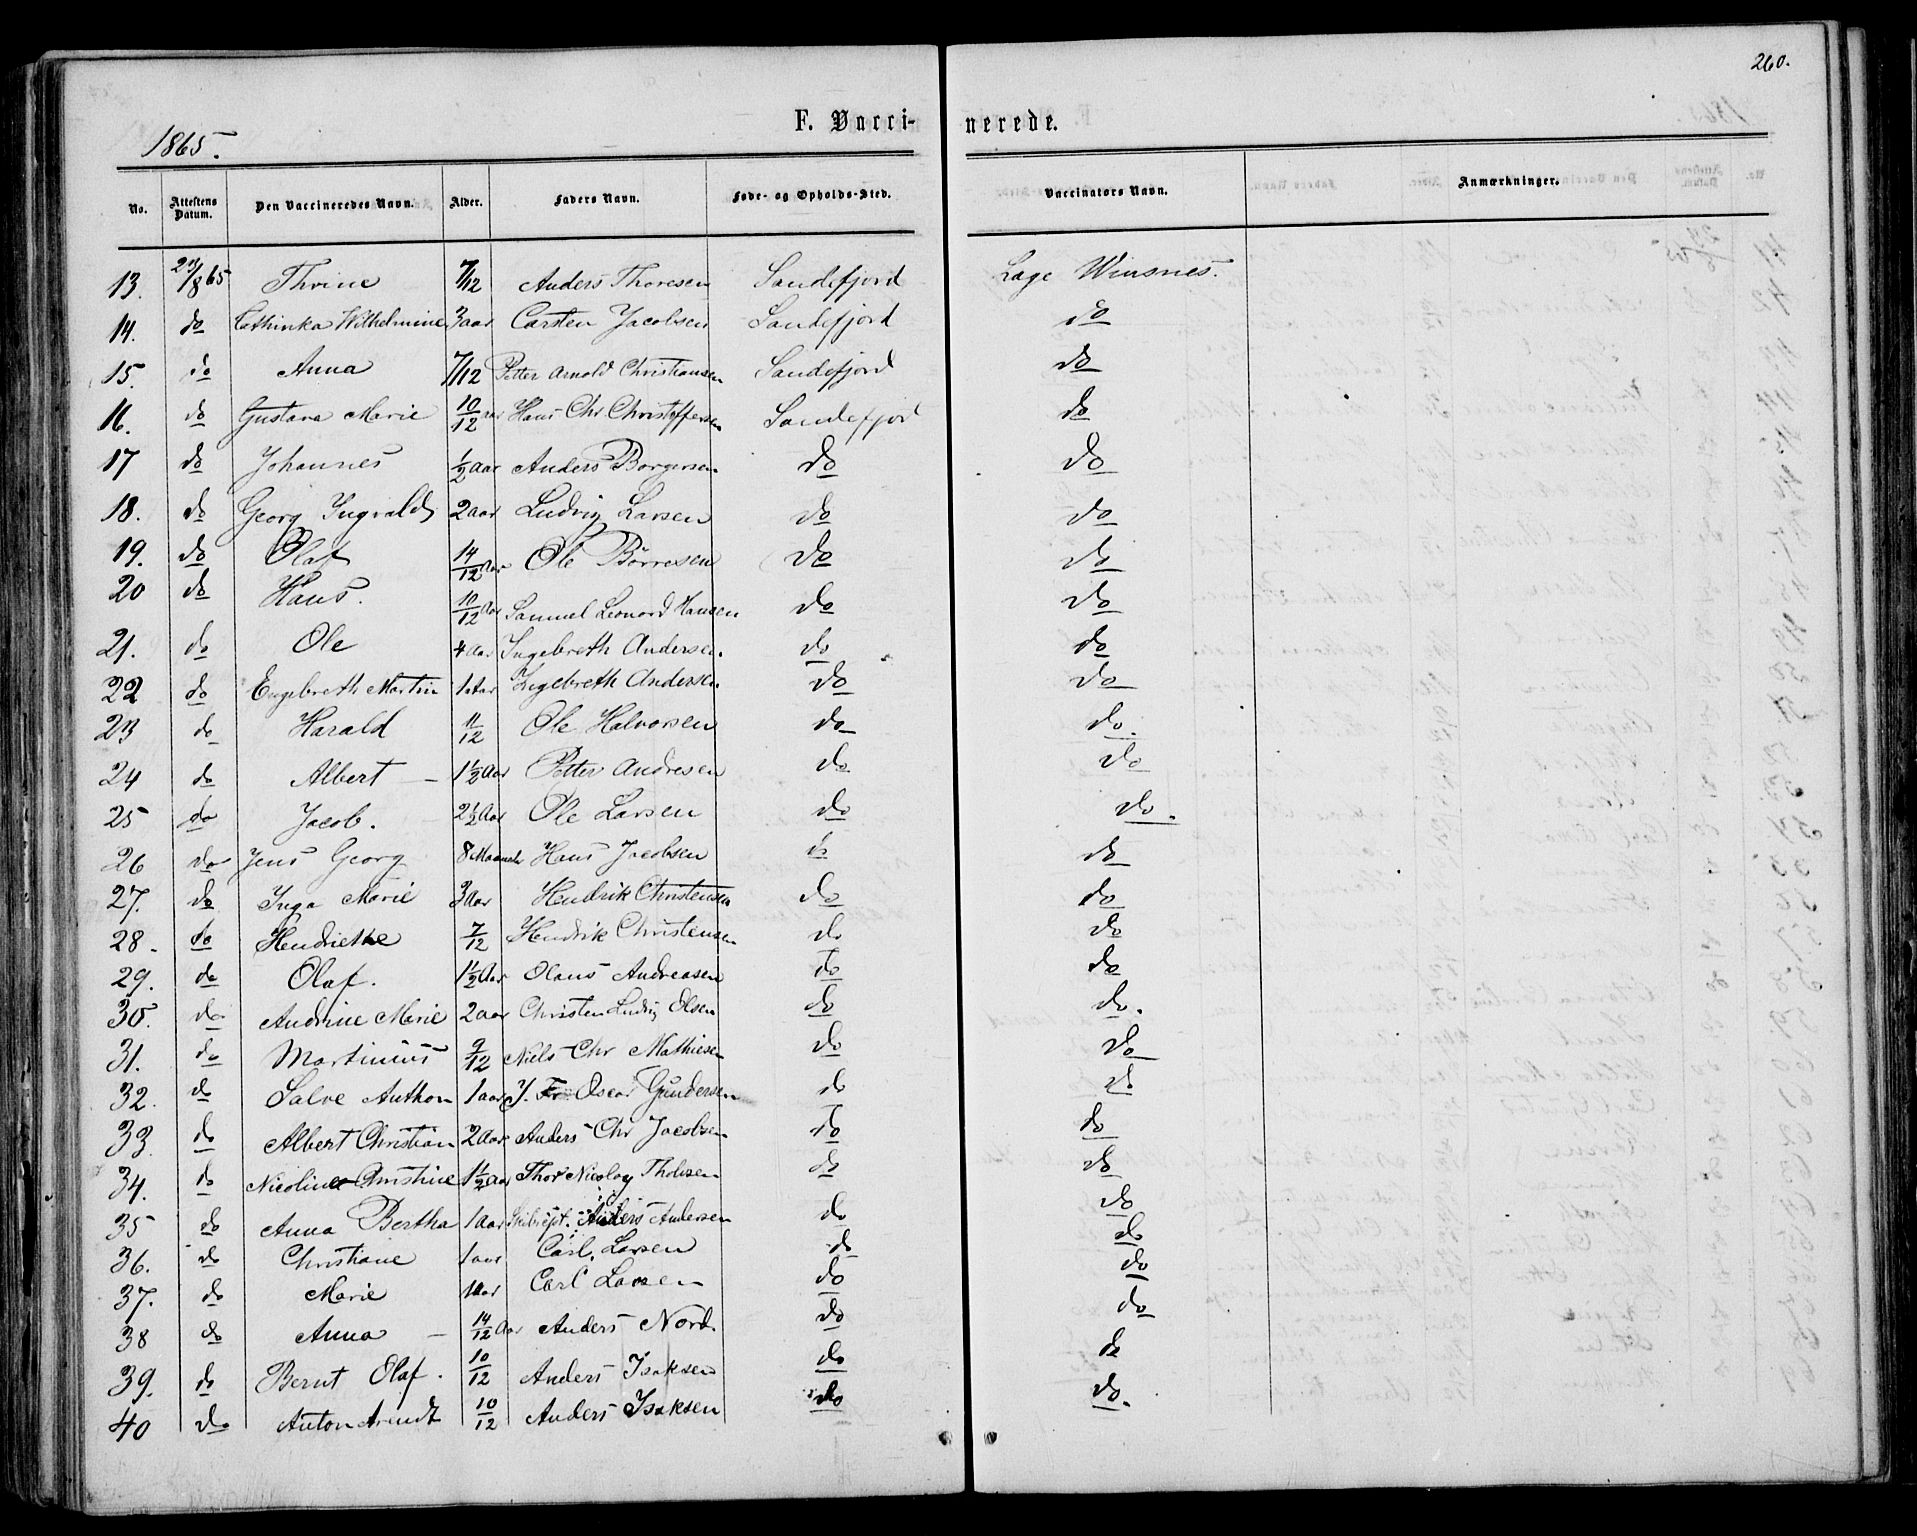 260.
1865.
F. Vacci- nerede.
No. Attestens Datum. Den Vaccineredes Navn. Alder. Faders Navn. Føde- og Opholds-Sted. Vaccinators Navn. Anmærkninger.
13. 24/8 65 Thrine 7/12 Anders Thoresen Sandefjord Lage Winsnes.
14. do Cathinka Wilhelmine 3 aar Carsten Jacobsen Sandefjord do
15. do Anna 7/12 Petter Arnold Christiansen Sandefjord do
16. do Gustava Marie 10/12 aar Hans Chr Christoffersen Sandefjor do
17 do Johannes 1/2 Aar Anders Borgersen do do
18. do Georg Ingvald 2 Aar Ludvig Larsen do do
19. do Olaf 14/12 Aar Ole Börresen do do
20 do Hans. 10/12 Aar Samuel Leonard Hansen do do
21. do Ole 4 Aar Ingebreth Andersen. do do
22 do Engebreth Martin 1 Aar Ingebreth Andersen. do do
23 do Harald 11/12 Ole Halvorsen do do.
24 do Albert — 1 1/2 Aar Petter Andresen do do
25 do Jacob. 2 1/2 Aar Ole Larsen do do.
26 do Jens Georg 8 Maaneder Hans Jacobsen do do
27. do Inga Marie 3 Aar Hendrik Christensen do do
28. do Hendriette 7/12 Hendrik Christensen do do
29. do Olaf. 1 1/2 Aar Olaus Andreasen do do
30. do Andrine Marie 2 aar Christen Ludvig Olsen do do.
31. do Martinius 9/12 Niels Chr Mathiesen do do
32. do Salve Anthon 1 aar J. Fr. Oscar Gundersen do do
33. do Albert Christian 2 Aar Anders Chr Jacobsen do do
34. do Nicoline Christine 1 1/2 Aar Thor Nicolay Tholesen do do
35 do Anna Bertha 1 Aar Anders Andersen do do
36. do Christiane 1 aar Carl. Larsen do do
37. do Marie 1 Aar Carl Larsen do do
38 do Anna — 14/12 Aar Anders Nord. do do
39. do Bernt Olaf. 10/12 Anders Isaksen do do
40 do Anton Arendt 10/12 Anders Isaksen do do.